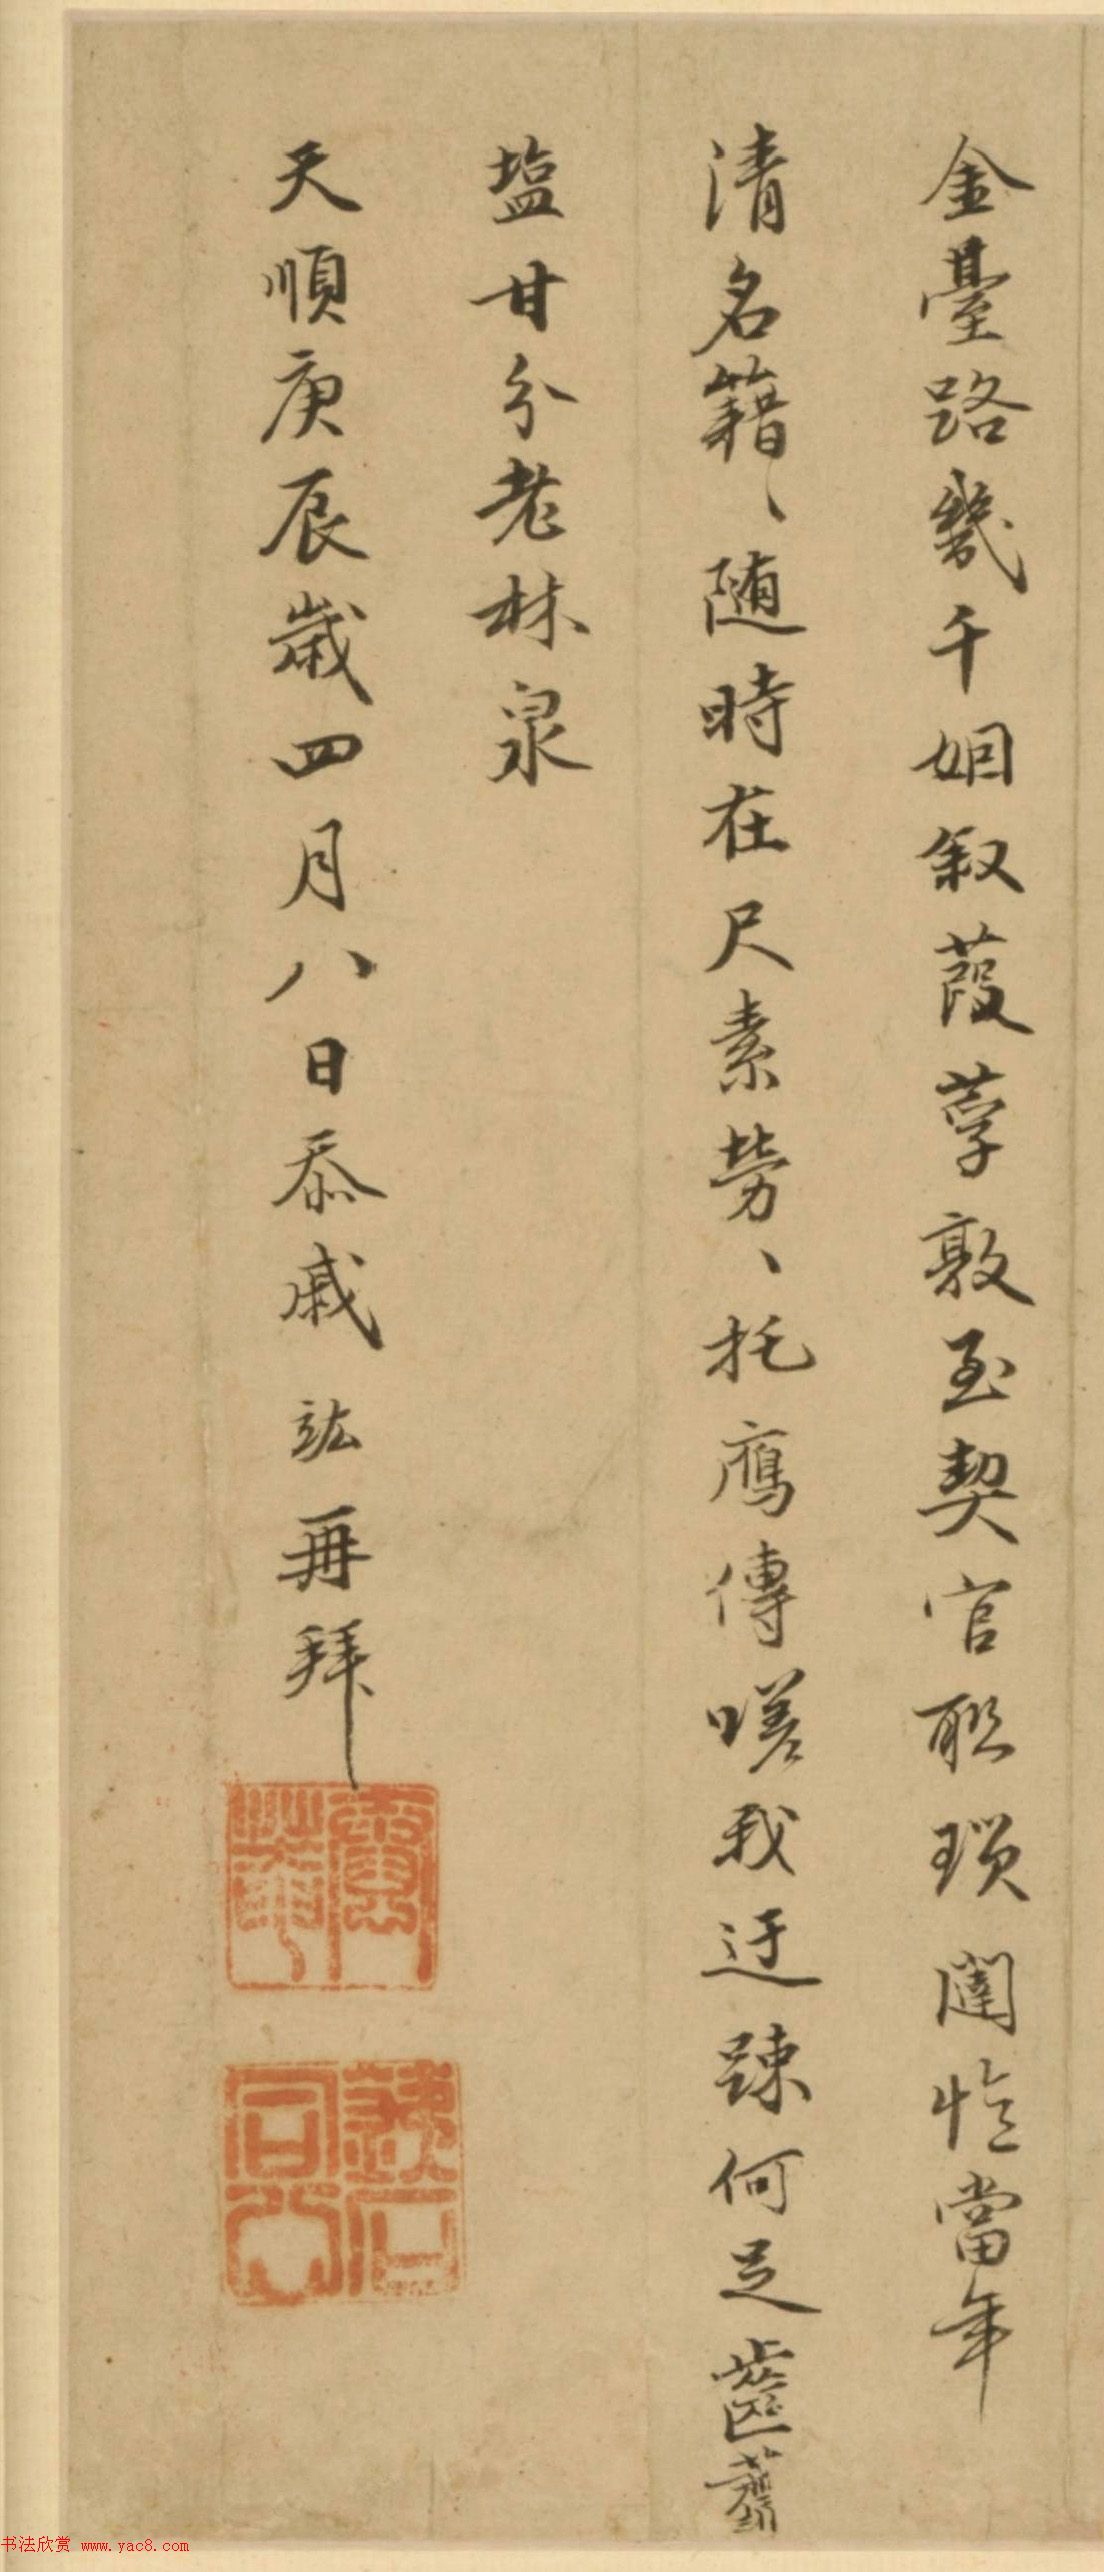 金臺路幾千姻叙葭莩敦至契官聯瑣闥憶當年
清名籍、随時在尺素勞、托鴈傳嗟我迂踈何足齒薺
塩甘分老林泉
天順庚辰歲四月八日忝戚竑再拜
书法欣赏 www.yac8.com